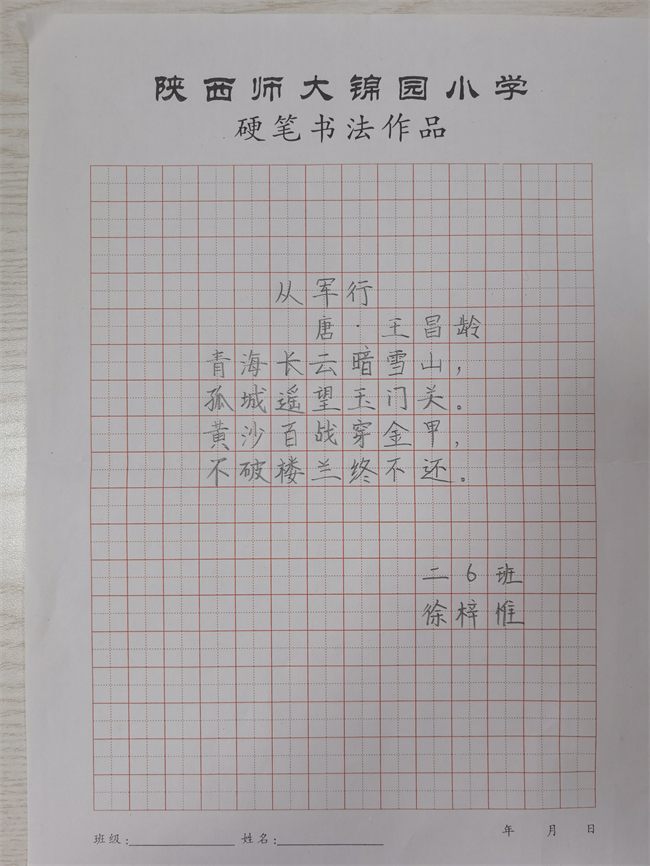 陕西师大锦园小学
硬笔书法作品
从军行
唐·王昌龄
青海长云暗雪山,
孤城遥望玉门关。
黄沙百战穿金甲,
不破楼兰终不还。
二6班
徐梓惟
年 月 日
班级: 姓名: